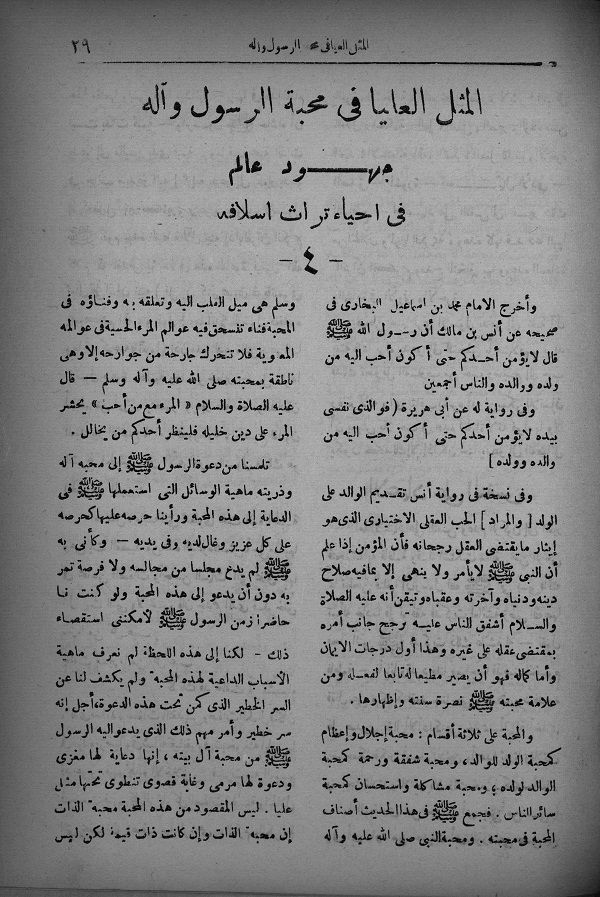 المثل العليا في محبة الرسول وآله
٢٩
المثل العليا في محبة الرسول وآله
جهود عالم
في احياء تراث اسلافه
- ٤ -
وأخرج الامام محمد بن اسماعيل البخارى فى
صحيحه عن أنس بن مالك أن رسول الله ﷺ
قال لايؤمن أحدكم حتى أكون أحب اليه من
ولده ووالده والناس أجمعين
وفى رواية له عن أبى هريرة (فوالذى نفسى
بيده لايؤمن أحدكم حتى أكون أحب اليه من
والده وولده]
وفى نسخة فى رواية أنس تقديم الوالد على
الولد [والمراد] الحب العقلى الاختيارى الذى هو
إيثار مايقتضى العقل رجحانه فأن المؤمن إذا علم
أن النبى ﷺ لايأمر ولا ينهى إلا بمافيه صلاح
دينه ودنياه وآخرته وعقباه وتيقن أنه عليه الصلاة
والسلام أشفق الناس عليه ترجح جانب أمره
بمقتضى عقله على غيره وهذا أول درجات الايمان
وأما كماله فهو أن يصير مطيعا له تابعا لفعله ومن
علامة محبته ﷺ نصرة سنته وإظهارها .
والمحبة على ثلاثة أقسام : محبة إجلال وإعظام
كمحبة الولد للوالد، ومحبة شفقة ورحمة كمحبة
الوالد لولده ، ومحبة مشاكلة واستحسان كمحبة
سائر الناس . فجمع ﷺ فى هذا الحديث أصناف
المحبة فى محبته . ومحبة النبى صلى الله عليه وآله
وسلم هى ميل القلب اليه وتعلقه به وفناؤه فى
المحبة فناء تنسحق فيه عوالم المرء الحسية فى عوالمه
المعنوية فلا تتحرك جارحة من جوارحه إلا وهى
ناطقة بمحبته صلى الله عليه وآله وسلم — قال
عليه الصلاة والسلام « المرء مع من أحب » يحشر
المرء على دين خليله فلينظر أحدكم من يخالل .
تلمسنا من دعوة الرسول ﷺ إلى محبه آله
وذريته ماهية الوسائل التى استعملها ﷺ فى
الدعاية إلى هذه المحبة ورأينا حرصه عليها كحرصه
على كل عزيز وغال لديه وفى يديه — وكأنى به
ﷺ لم يدع مجلسا من مجالسه ولا فرصة تمر
به دون أن يدعو إلى هذه المحبة ولو كنت
حاضرا زمن الرسول ﷺ لأمكننى استقصاء
ذلك - لكنا إلى هذه اللحظة لم نعرف ماهية
الأسباب الداعية لهذه المحبة ولم يكشف لنا عن
السر الخطير الذى كمن تحت هذه الدعوة، أجل إنه
سر خطير وأمر مهم ذلك الذى يدعو اليه الرسول
ﷺ من محبة آل بيته ، إنها دعاية لها مغزى
ودعوة لها مرمى وغاية قصوى تنطوى تحتها مثل
عليا . ليس المقصود من هذه المحبة محبة الذات
إن محبة الذات وإن كانت ذات قيمة لكن ليس